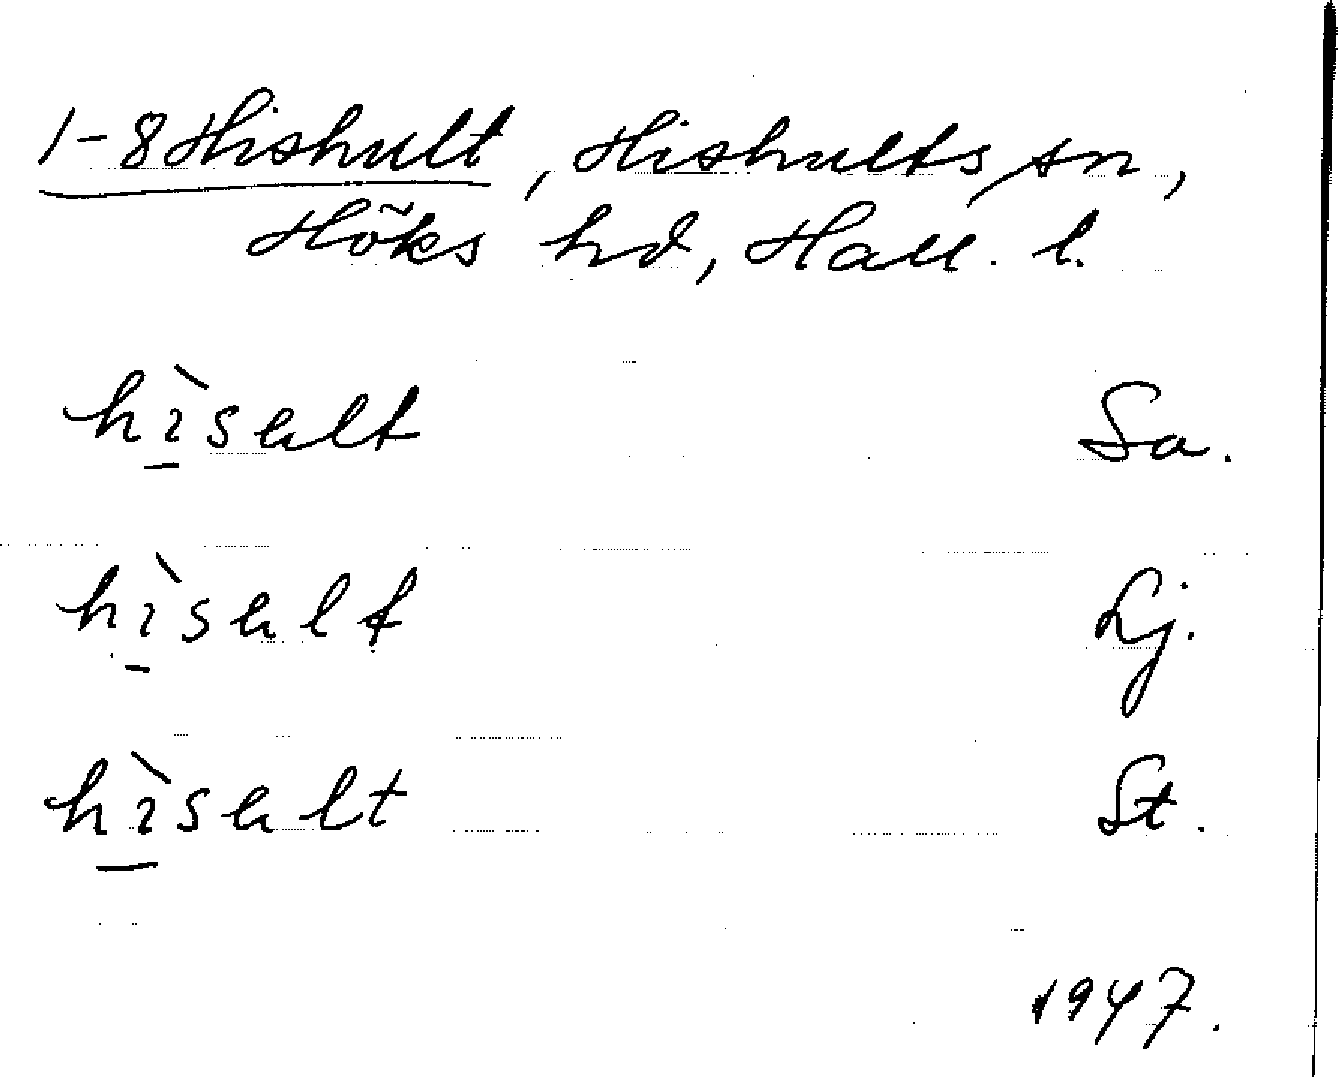 1-8 Hishult, Hishults sn,
Höks hd, Hall. l.
hìsalt Sa.
hìsalt Lj.
hìsalt St.
1947.